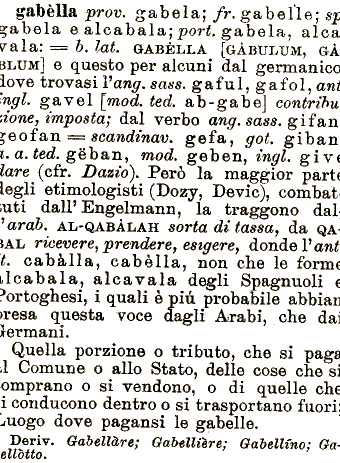 gabèlla prov. gabela; fr. gabelle; sp
gabela e alcabala; port. gabela, alca
vala: = b. lat. GABÈLLA [GÀBULUM, GÀ
BLUM] e questo per alcuni dal germanico
dove trovasi l'ang. sass. gaful, gafol, ant
ingl. gavel [mod. ted. ab-gabe] contribu
zione, imposta; dal verbo ang. sass. gifan
geofan = scandinav. gefa, got. giban
a. a. ted. gëban, mod. geben, ingl. give
dare (cfr. Dazio). Però la maggior parte
degli etimologisti (Dozy, Devic), combat
tuti dall'Engelmann, la traggono dal
l'arab. AL-QABÀLAH sorta di tassa, da QA
BAL ricevere, prendere, esigere, donde l'ant
it. cabàlla, cabèlla, non che le forme
alcabala, alcavala degli Spagnuoli e
Portoghesi, i quali è piú probabile abbian
presa questa voce dagli Arabi, che dai
Germani.
Quella porzione o tributo, che si paga
al Comune o allo Stato, delle cose che si
comprano o si vendono, o di quelle che
si conducono dentro o si trasportano fuori;
Luogo dove pagansi le gabelle.
Deriv. Gabellàre; Gabellière; Gabellíno; Ga-
bellòtto.